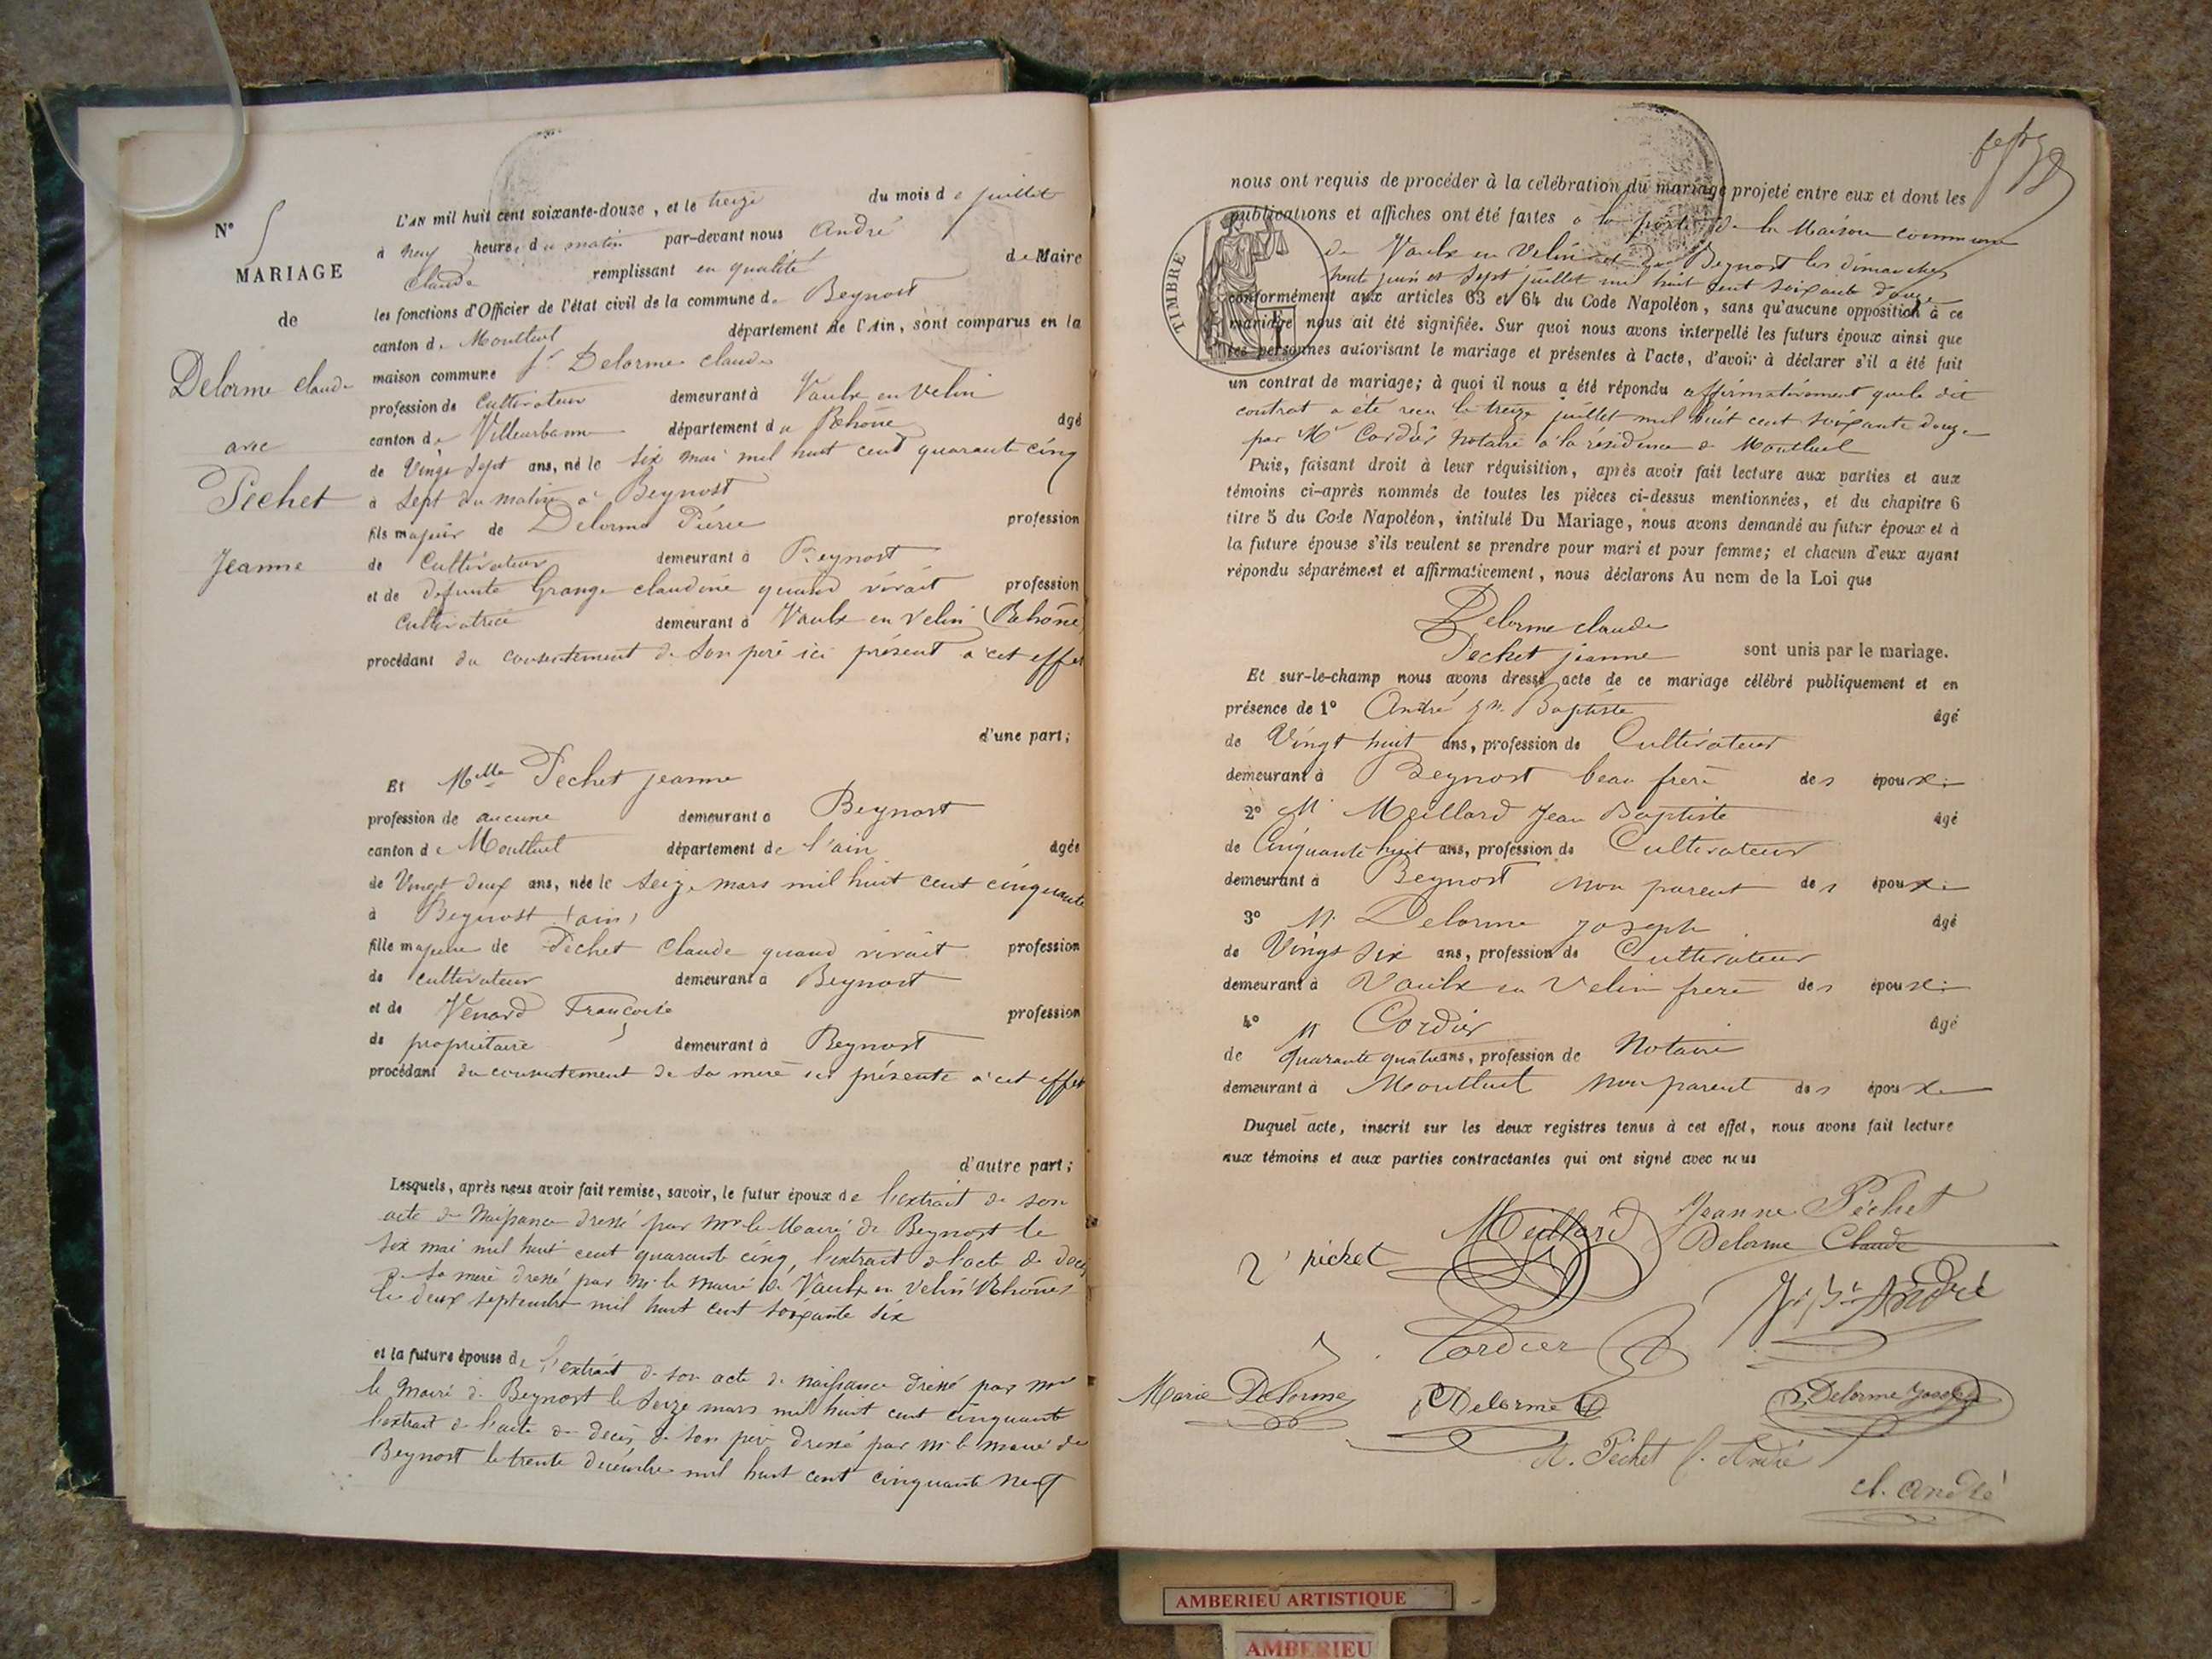 N° 5
MARIAGE
de
Delorme claude
avec
Pechet
Jeanne
L'AN mil huit cent soixante-douze, et le treize du mois de juillet
à neuf heures du matin par-devant nous André
Claude remplissant en qualité de Maire
les fonctions d'Officier de l'état civil de la commune de Beynost
canton de Montluel département de l'Ain, sont comparus en la
maison commune Sr Delorme claude
profession de Cultivateur demeurant à Vaulx en velin
canton de Villeurbanne département du Rhône âgé
de Vingt sept ans, né le six mai mil huit cent quarante cinq
à sept du matin à Beynost
fils majeur de Delorme Piérre profession
de Cultivateur demeurant à Beynost
et de défunte Grange claudine quand vivait profession
Cultivatrice demeurant à Vaulx en velin (Rhône)
procédant du consentement de son père ici présent à cet effet
d'une part;
Et Melle Pechet jeanne
profession de aucune demeurant à Beynost
canton de Montluel département de l'ain âgée
de Vingt deux ans, née le seize mars mil huit cent cinquante
à Beynost (ain)
fille majeure de Péchet Claude quand vivait profession
de cultivateur demeurant à Beynost
et de Venard Françoise profession
de propriétaire demeurant à Beynost
procédant du consentement de sa mère ici présente à cet effet
d'autre part;
Lesquels, après nous avoir fait remise, savoir, le futur époux de l'extrait de son
acte de Naissance dressé par Mr le Maire de Beynost le
six mai mil huit cent quarante cinq, l'extrait de l'acte de décès
de sa mère dressé par Mr le maire de Vaulx en velin (Rhône)
le deux septembre mil huit cent soixante six
et la future épouse de l'extrait de son acte de naissance dressé par Mr
le Maire de Beynost le seize mars mil huit cent cinquante
l'extrait de l'acte de décès de son père dressé par Mr le maire de
Beynost le trente décembre mil huit cent cinquante neuf
nous ont requis de procéder à la célébration du mariage projeté entre eux et dont les
publications et affiches ont été faites à la porte de la Maison commune
de Vaulx en Velin et de Beynost les dimanches
trente juin et sept juillet mil huit cent soixante douze
conformément aux articles 63 et 64 du Code Napoléon, sans qu'aucune opposition à ce
mariage nous ait été signifiée. Sur quoi nous avons interpellé les futurs époux ainsi que
les personnes autorisant le mariage et présentes à l'acte, d'avoir à déclarer s'il a été fait
un contrat de mariage; à quoi il nous a été répondu affirmativement que le dit
contrat a été reçu le treize juillet mil huit cent soixante douze
par Me Cordier Notaire à la résidence de Montluel
Puis, faisant droit à leur réquisition, après avoir fait lecture aux parties et aux
témoins ci-après nommés de toutes les pièces ci-dessus mentionnées, et du chapitre 6
titre 5 du Code Napoléon, intitulé Du Mariage, nous avons demandé au futur époux et à
la future épouse s'ils veulent se prendre pour mari et pour femme; et chacun d'eux ayant
répondu séparément et affirmativement, nous déclarons Au nom de la Loi que
Delorme claude
Pechet jeanne sont unis par le mariage.
Et sur-le-champ nous avons dressé acte de ce mariage célébré publiquement et en
présence de 1° André Jn. Baptiste âgé
de Vingt huit ans, profession de Cultivateur
demeurant à Beynost beau frère des époux
2° Mr Meillard Jean Baptiste âgé
de Cinquante huit ans, profession de Cultivateur
demeurant à Beynost non parent des époux
3° M. Delorme joseph âgé
de Vingt six ans, profession de Cultivateur
demeurant à Vaulx en Velin frère des époux
4° M Cordier âgé
de quarante quatre ans, profession de Notaire
demeurant à Montluel Non parent des époux
Duquel acte, inscrit sur les deux registres tenus à cet effet, nous avons fait lecture
aux témoins et aux parties contractantes qui ont signé avec nous
Meillard Jeanne Péchet
pichet Delorme Claude
André
Cordier
Marie Delorme Delorme Delorme Joseph
A. Péchet f. André
cl. André
TIMBRE
AMBERIEU ARTISTIQUE
AMBERIEU